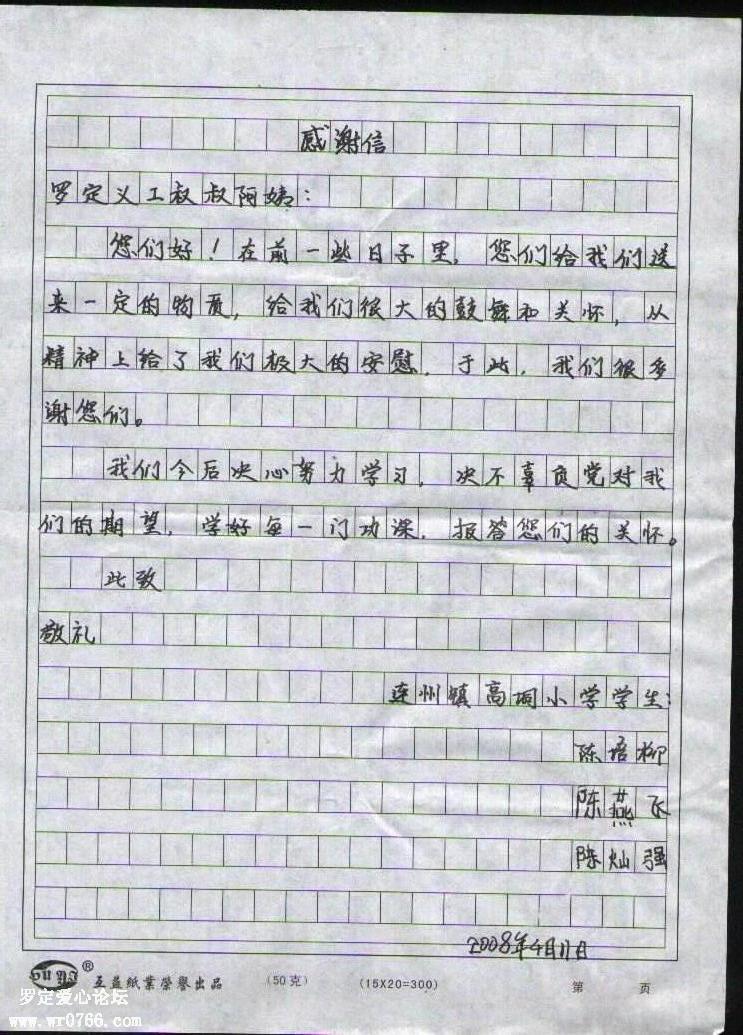 感谢信
罗定义工叔叔阿姨：
您们好！在前一些日子里，您们给我们送
来一定的物质，给我们很大的鼓舞和关怀，从
精神上给了我们极大的安慰，于此，我们很多
谢您们。
我们今后决心努力学习，决不辜负党对我
们的期望，学好每一门功课，报答您们的关怀。
此致
敬礼
连州镇高垌小学学生：
陈培柳
陈燕飞
陈灿强
2008年4月11日
® 互益纸业荣誉出品 （50克） （15X20=300） 第 页
罗定爱心论坛
www.wr0766.com